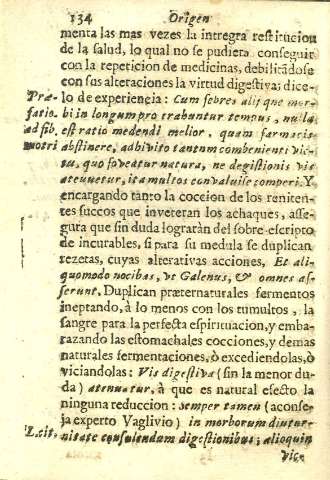 134 Origen
menta las mas vezes la intregra restitucion
de la salud, lo qual no se pudiera conseguir
con la repeticion de medicinas, debilitãdose
con sus alteraciones la virtud digestiva; dice-
Præ- lo de experiencia: Cum febres alijque mor-
fatio. bi in longum pro trabuntur tempus, nulla
ad fib. est ratio medendi melior, quam farmacis
motri abstinere, adhivito tantum combenienti vic-
tu, quo foveatur natura, ne degistionis vis
atevuetur, ita multos convaluise comperi. Y
encargando tanto la coccion de los reniten-
tes succos que inveteran los achaques, asse-
gura que sin duda lograràn del sobre-escripto
de incurables, si para su medula se duplican
rezetas, cuyas alterativas acciones, Et ali-
quomodo nocibas, vt Galenus, & omnes as-
serunt. Duplican præternaturales fermentos
ineptando, à lo menos con los tumultos, la
sangre para la perfecta espirituacion, y emba-
razando las estomachales cocciones, y demas
naturales fermentaciones, ò excediendolas, ò
viciandolas: Vis digestiva (sin la menor du-
da) atenuatur, à que es natural efecto la
ninguna reduccion: semper tamen (aconse-
ja experto Vaglivio) in morborum diutur-
nitate consulendum digestionibus; alioquin
vice